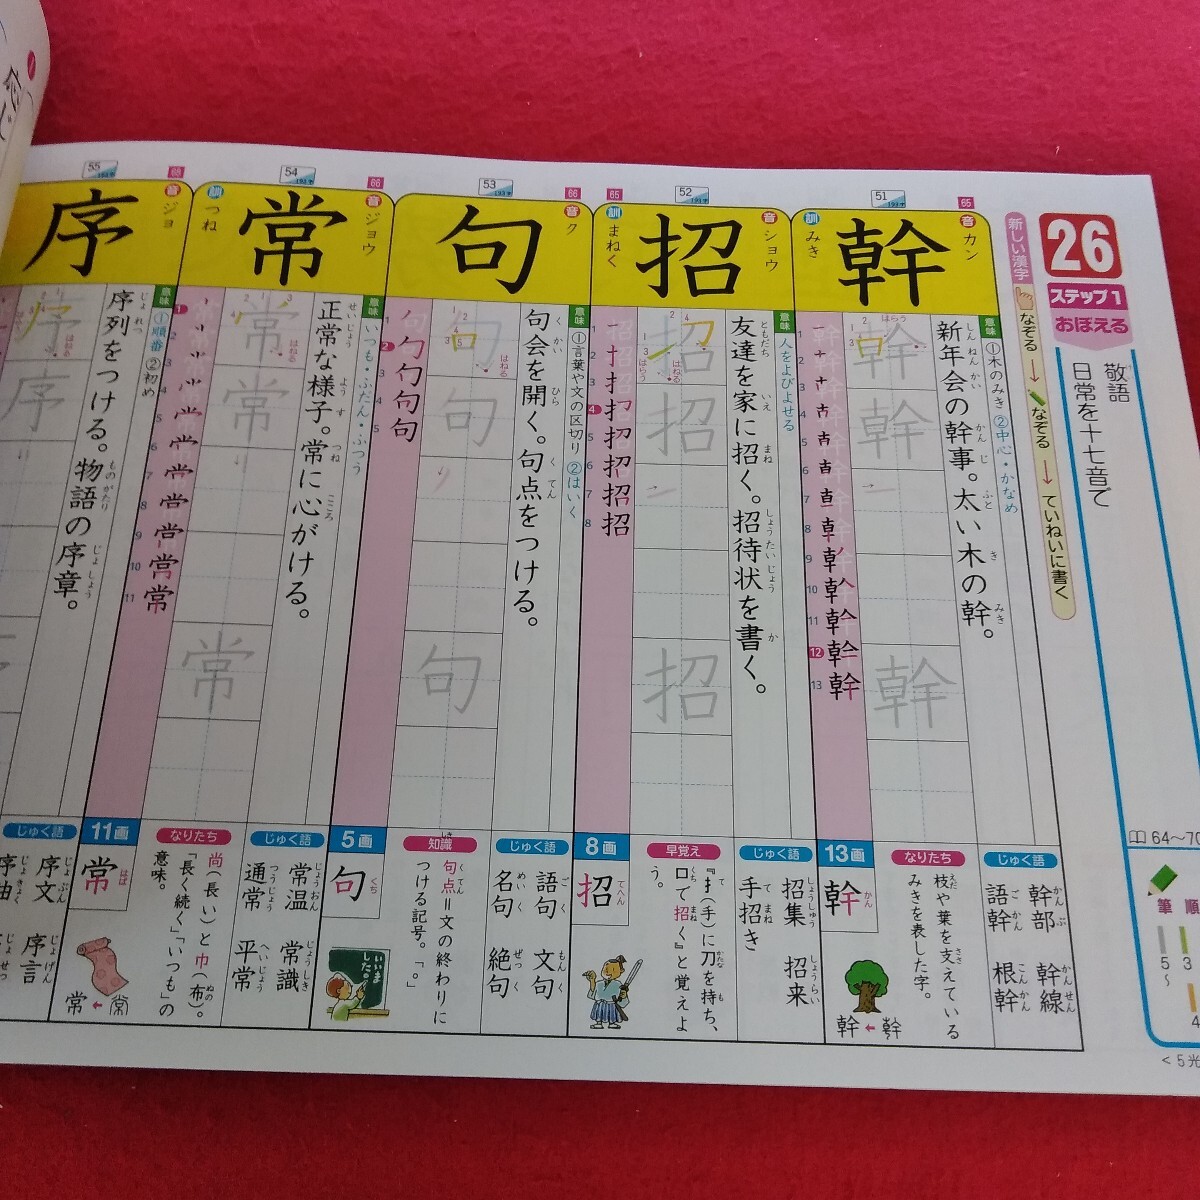 26
ステップ1
おぼえる
敬語
日常を十七音で
64〜70
筆
順
5〜
3
4
<5光
新しい漢字
なぞる→なぞる→ていねいに書く
51
65
音 カン
訓 みき
幹
意味 ①木のみき ②中心・かなめ
新年会の幹事。太い木の幹。
13画
幹
かん
じゅく語
幹部 幹線
語幹 根幹
なりたち
枝や葉を支えている
みきを表した字。
幹←幹
52
65
音 ショウ
訓 まねく
招
意味 人をよびよせる
友達を家に招く。招待状を書く。
8画
招
てへん
じゅく語
招集 招来
手招き
早覚え
『扌(手)に刀を持ち、
口で招く』と覚えよ
う。
53
66
音 ク
句
意味 ①言葉や文の区切り ②はいく
句会を開く。句点をつける。
5画
句
くち
じゅく語
語句 文句
名句 絶句
知識
句点=文の終わりに
つける記号。「。」
いいま
した。
54
66
音 ジョウ
訓 つね
常
意味 いつも・ふだん・ふつう
正常な様子。常に心がける。
11画
常
はば
じゅく語
常温 常識
通常 平常
なりたち
尚(長い)と巾(布)。
「長く続く」「いつも」の
意味。
常←常
55
68
音 ジョ
序
意味 ①順番 ②初め
序列をつける。物語の序章。
じゅく語
序文 序言